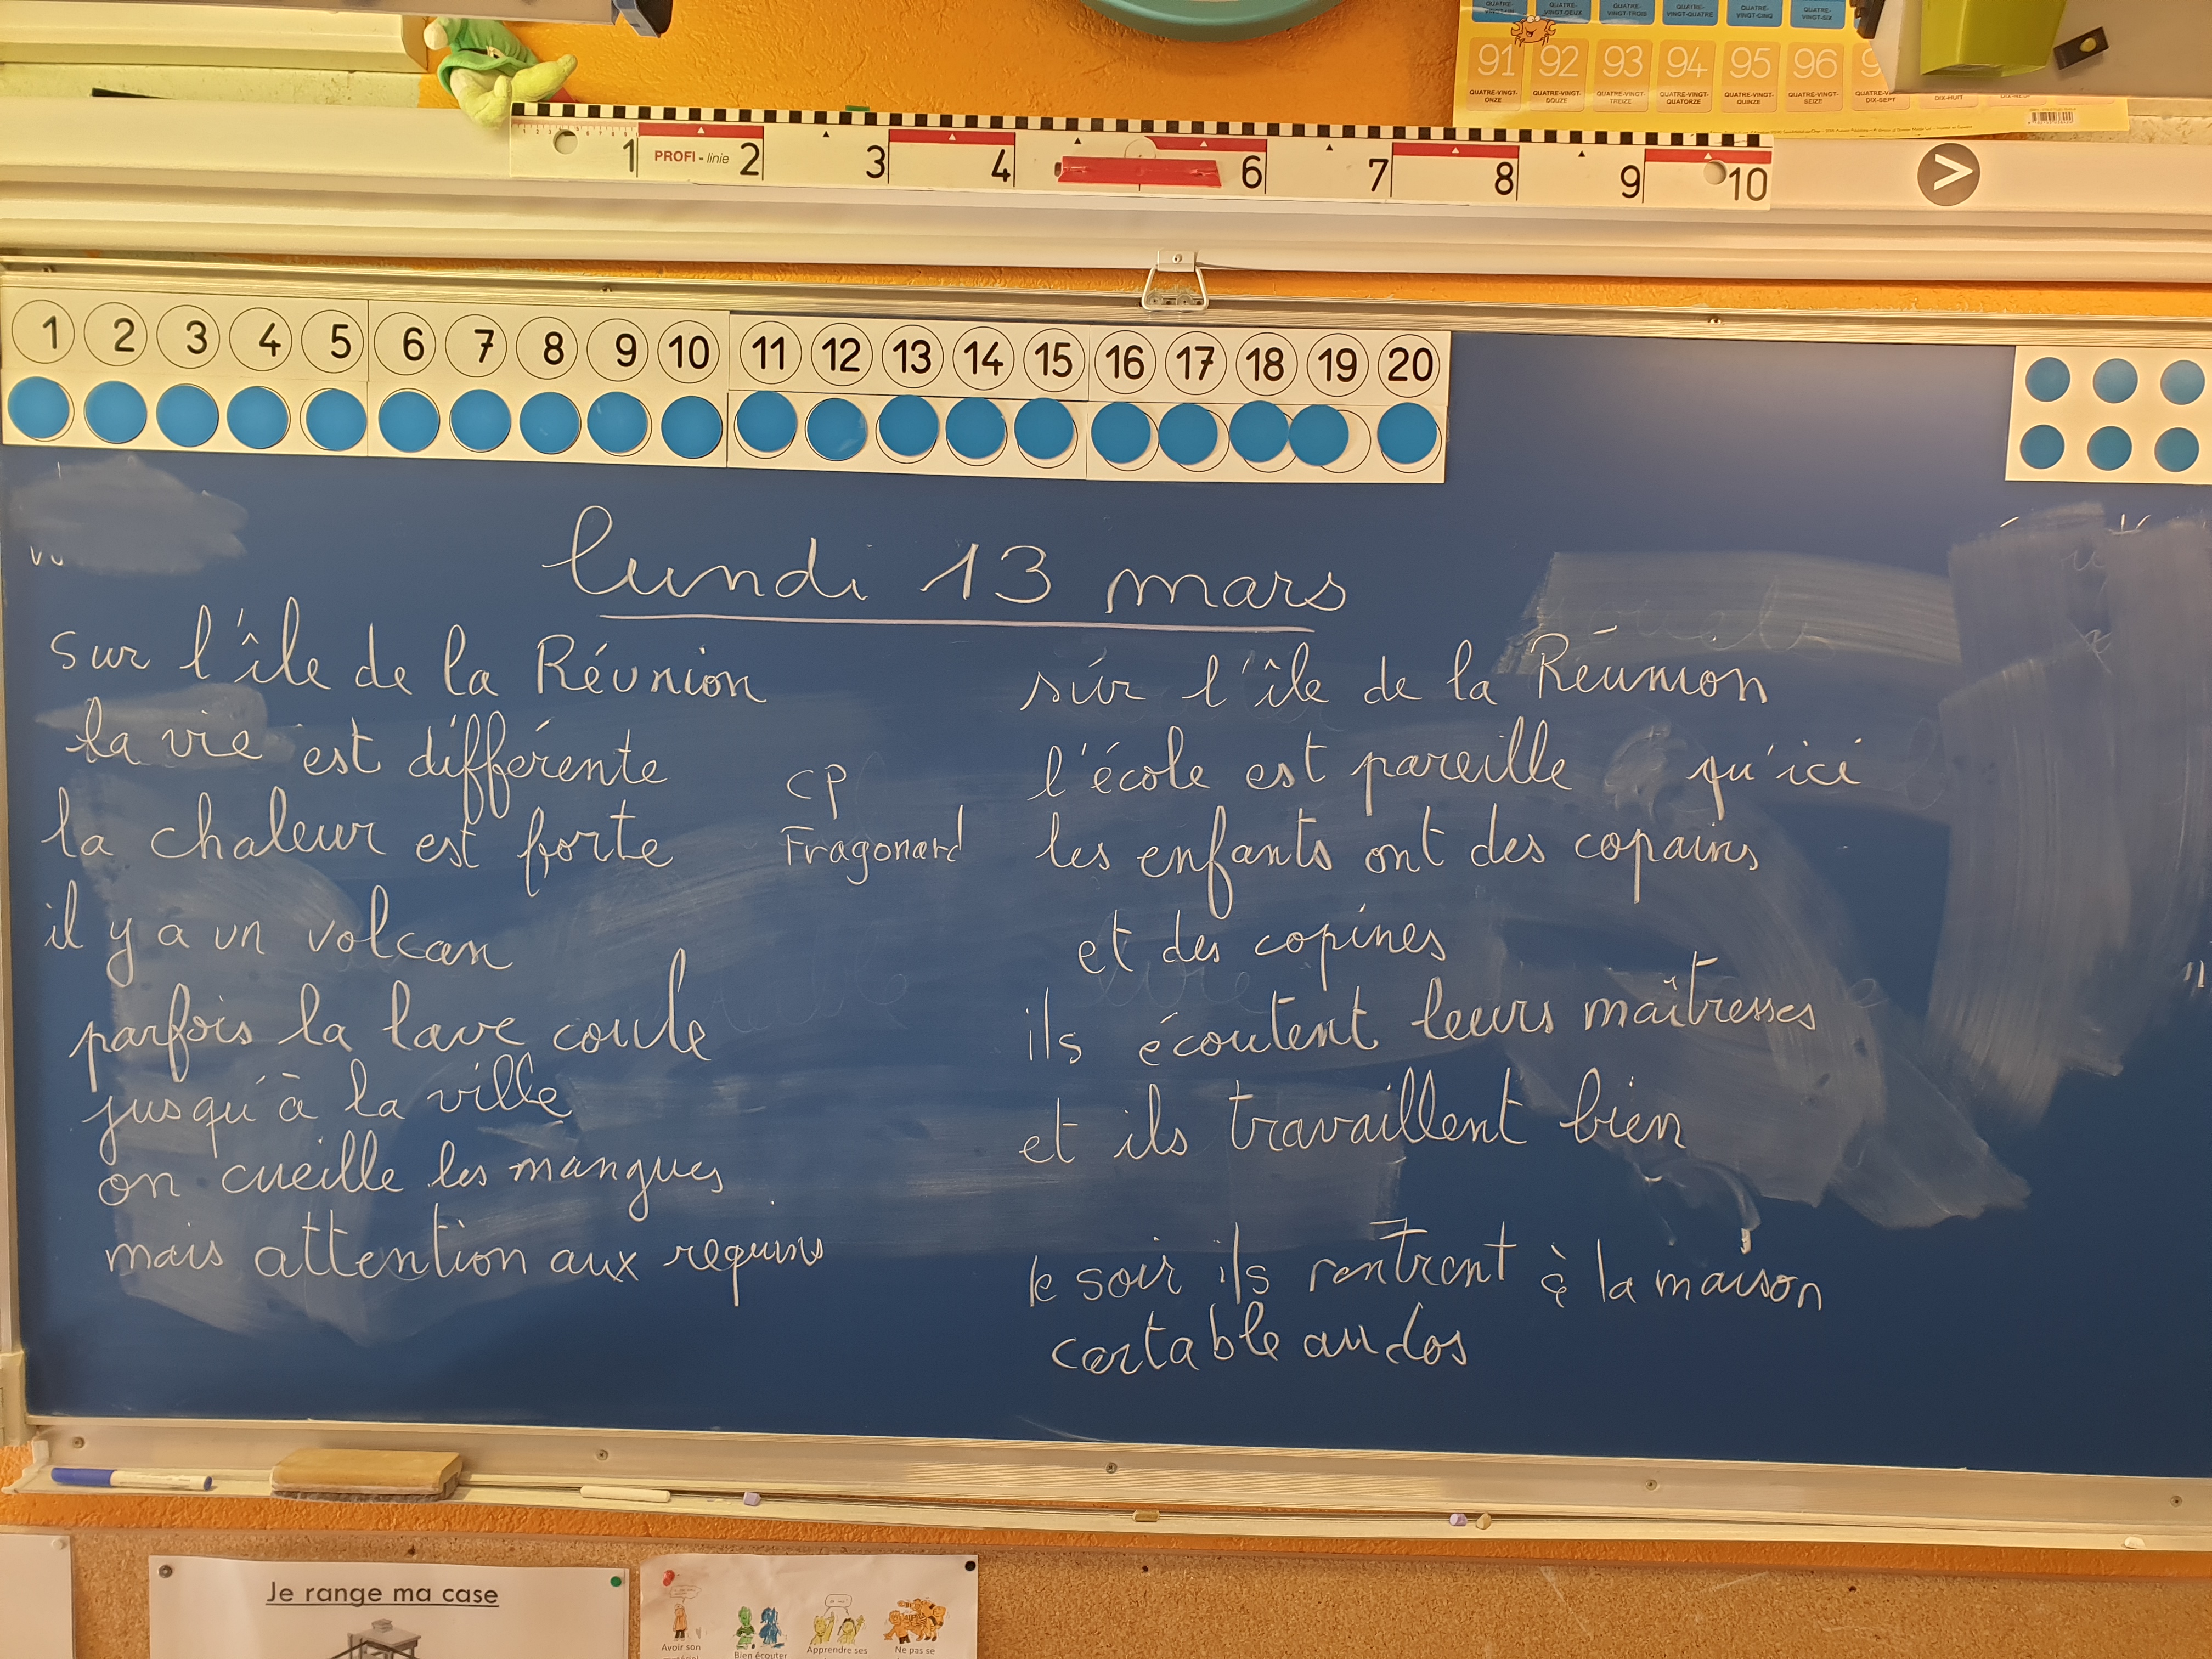 QUATRE-VINGT-DEUX QUATRE-VINGT-TROIS QUATRE-VINGT-QUATRE QUATRE-VINGT-CINQ QUATRE-VINGT-SIX
91 92 93 94 95 96
QUATRE-VINGT-ONZE QUATRE-VINGT-DOUZE QUATRE-VINGT-TREIZE QUATRE-VINGT-QUATORZE QUATRE-VINGT-QUINZE QUATRE-VINGT-SEIZE
1 PROFI - linie 2 3 4 6 7 8 9 10
>
1 2 3 4 5 6 7 8 9 10 11 12 13 14 15 16 17 18 19 20
lundi 13 mars
sur l'île de la Réunion
la vie est différente
la chaleur est forte
il y a un volcan
parfois la lave coule
jusqu'à la ville
on cueille les mangues
mais attention aux requins
CP
Fragonard
sur l'île de la Réunion
l'école est pareille qu'ici
les enfants ont des copains
et des copines
ils écoutent leurs maîtresses
et ils travaillent bien
le soir ils rentrent à la maison
cartable au dos
Je range ma case
Avoir son
Bien écouter
Apprendre ses
Ne pas se